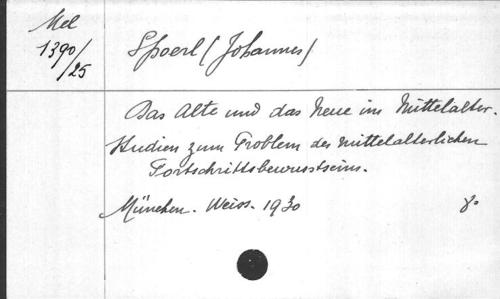 Mel
1390/25
Spoerl (Johannes)
Das Alte und das Neue im Mittelalter.
Studien zum Problem des mittelalterlichen
Fortschrittsbewusstseins.
München. Weiss. 1930 8°